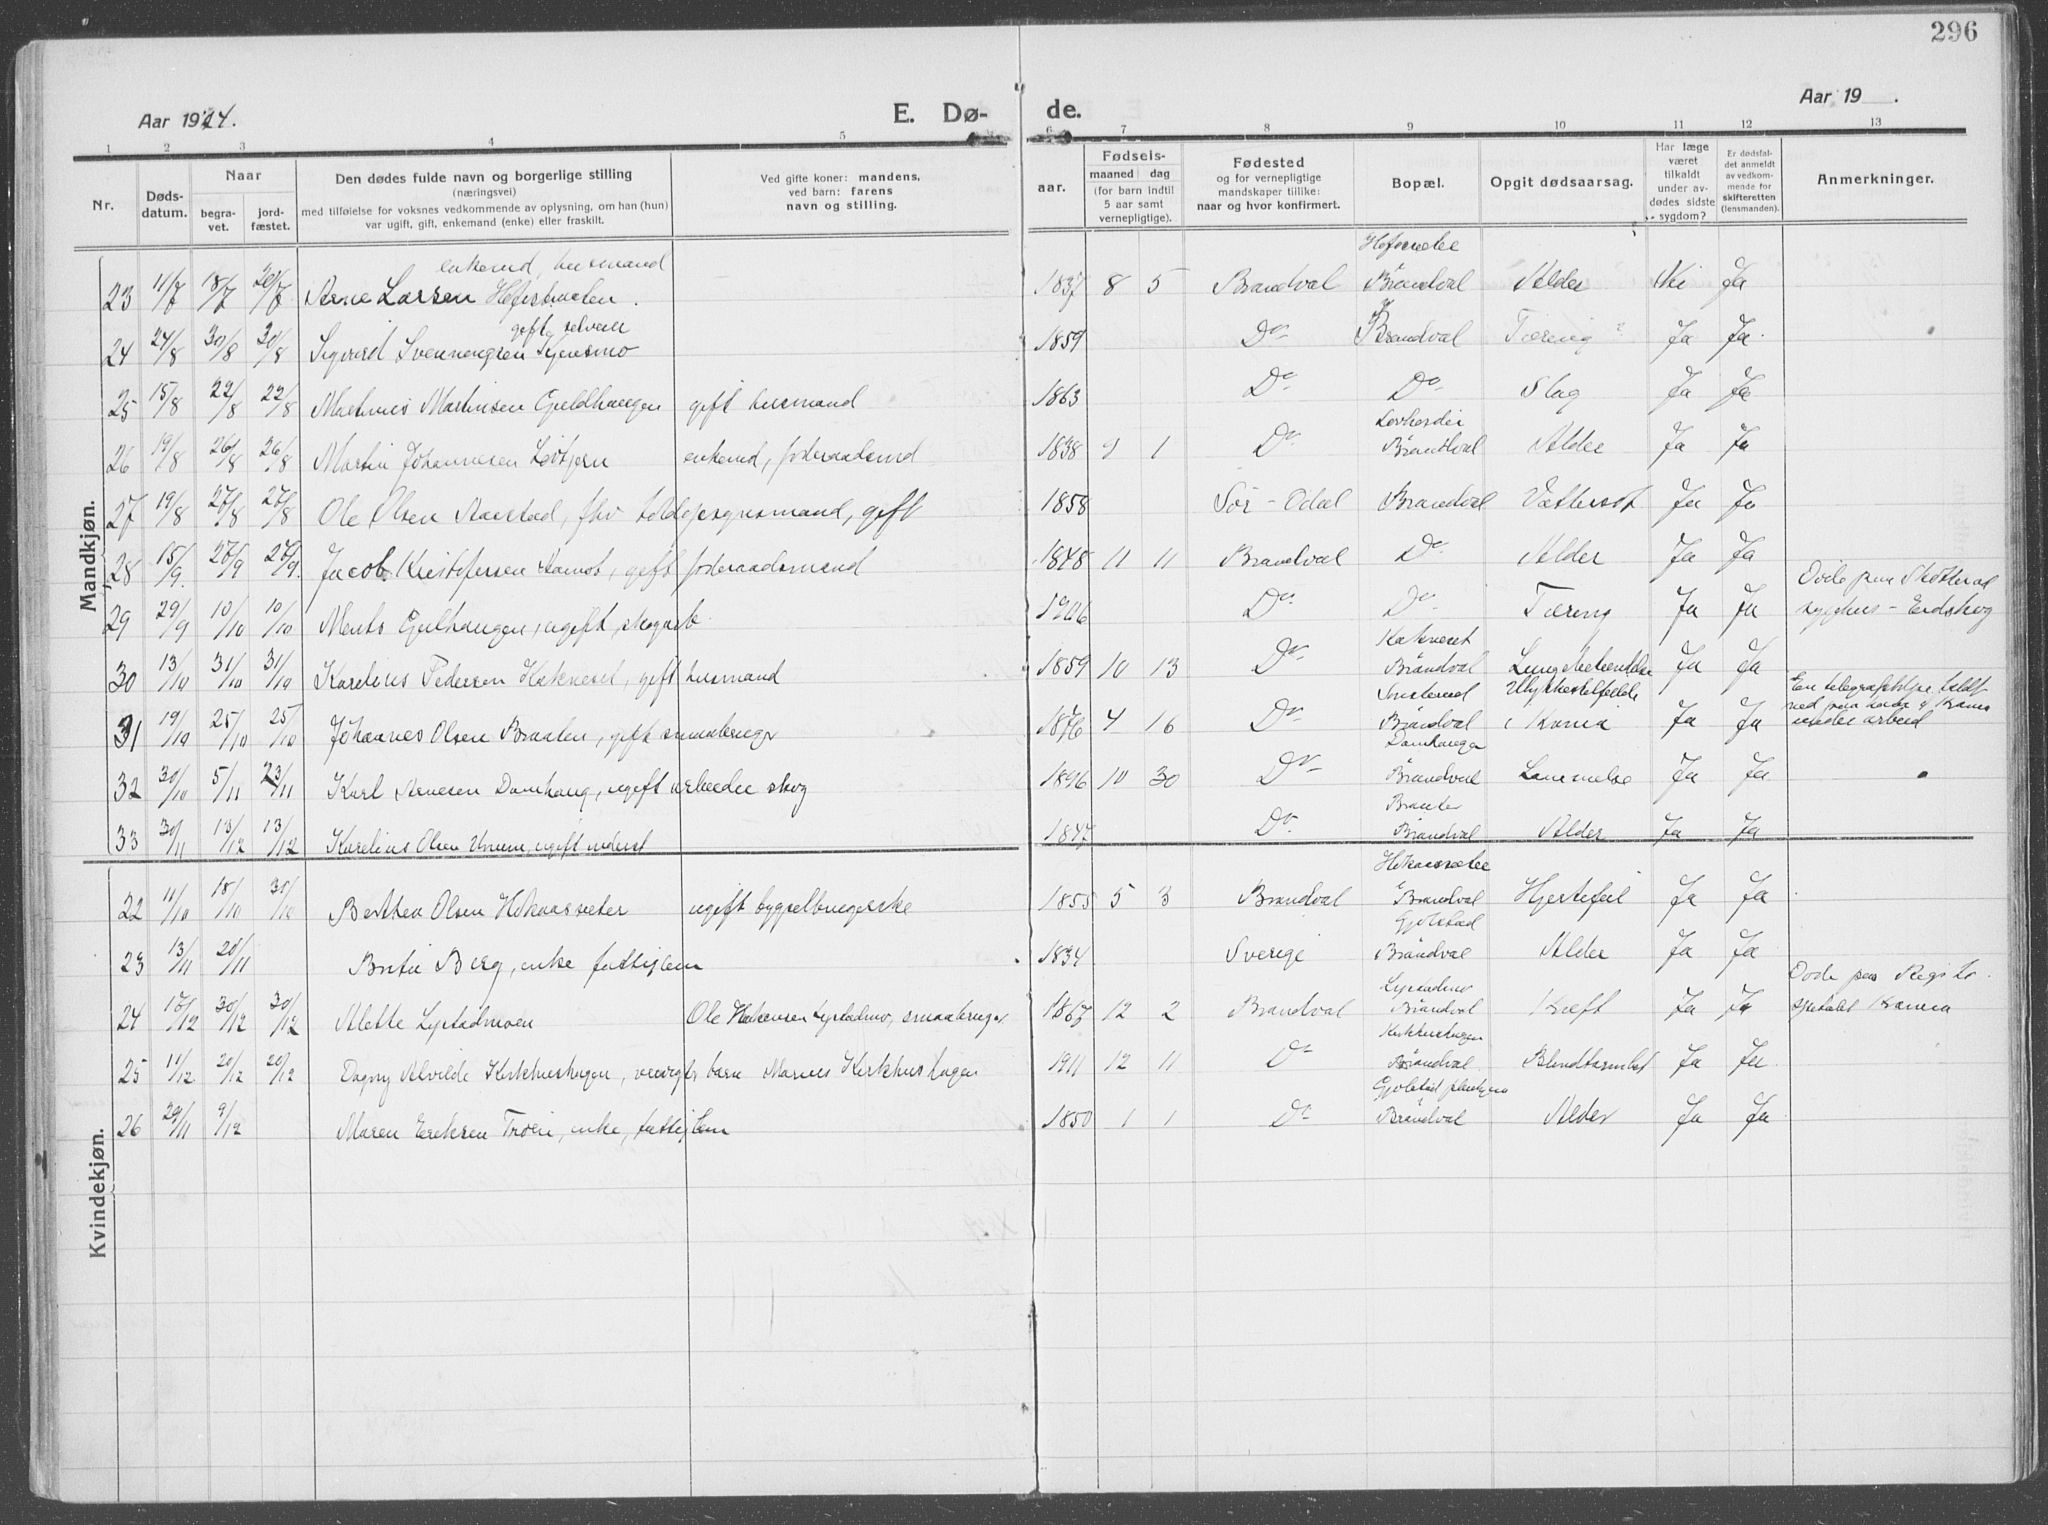 296
Aar 1924.
E. Dø-
de.
Aar 19 .
1 2 3 4 5 6 7 8 9 10 11 12 13
Nr.
Døds-
datum.
Naar
begra-
vet.
jord-
fæstet.
Den dødes fulde navn og borgerlige stilling
(næringsvei)
med tilføielse for voksnes vedkommende av oplysning, om han (hun)
var ugift, gift, enkemand (enke) eller fraskilt.
Ved gifte koner: mandens,
ved barn: farens
navn og stilling.
aar.
Fødsels-
maaned dag
(for barn indtil
5 aar samt
vernepligtige).
Fødested
og for vernepligtige
mandskaper tillike:
naar og hvor konfirmert.
Bopæl.
Opgit dødsaarsag.
Har læge
været
tilkaldt
under av-
dødes sidste
sygdom?
Er dødsfal-
det anmeldt
av vedkom-
mende for
skifteretten
(lensmanden).
Anmerkninger.
Mandkjøn.
enkemd, husmand
23 11/7 18/7 20/7 Arne Larsen 1837 8 5 Brandval Brandval Alder Nei Ja
gift, selveier
24 24/8 30/8 30/8 Sigurd 1859 Do Brandval Tæring ? Ja Ja
25 15/8 22/8 22/8 Mathæus Martinsen Gjeldhaugen gift husmand 1863 Do Do Slag Ja Ja
26 19/8 26/8 26/8 Martin Johannesen enkemd, foderaadsmd 1838 9 1 Do Brandval Alder Ja Ja
27 19/8 27/8 27/8 Ole Olsen fhv toldopsynsmand, gift 1858 Sør-Odal Brandval Vattersot Ja Ja
28 15/9. 20/9 20/9. Jacob Kristofersen gift foderaadsmand 1848 11 11 Brandval Do Alder Ja Ja
Døde paa Skotterud
29 29/9 10/10 10/10 ugift, skogarb. 1906 Do Do Tæring Ja Ja sygehus - Eidskog
30 13/10 31/10 31/10 Karelius Pedersen Kekneset, gift husmand 1859 10 13 Do Kekneset Brandval Lungebetændelse Ja Ja
31 19/10 25/10 25/10 Johannes Olsen Braaten, gift smaabruger 1876 4 16 Do Brandval Ulykkestilfelde i Kania Ja Ja
En telegrafstolpe faldt
ned paa under arbeid
32 30/10 5/11 23/11 Karl Arnesen Damhaug, ugift arbeider skog 1896 10 30 Do Damhaugen Brandval Lammelse Ja Ja
33 30/11 13/12 13/12 Karelius Olsen ugift inderst 1847 Do Brandval Alder Ja Ja
Kvindekjøn.
22 11/10 18/10 30/10 Berthea Olsen Hokaasseter ugift bygselbrugerske 1855 5 3 Brandval Hokaasseter Brandval Hjertefeil Ja Ja
23 13/11 20/11 Berg, enke fattiglem 1834 Sverige Gjølstad Brandval Alder Ja Ja
Døde paa Rigsho-
24 17/12 30/12 30/12 Alette Lystadmoen Ole Hokensen Lystadmo, smaabruger 1867 12 2 Brandval Lystadmo Brandval Kræft Ja Ja spitalet
25 11/12 20/12 20/12 Dagny Alvilde Kirkhushagen, barn Marius Kirkhushagen 1911 12 11 Do Kirkhushagen Brandval Blindtarmbet Ja Ja
26 29/11 9/12 Maren Eriksen Troen, enke, fattiglem 1850 1 1 Do Gjølstad pleiehjem Brandval Alder Ja Ja